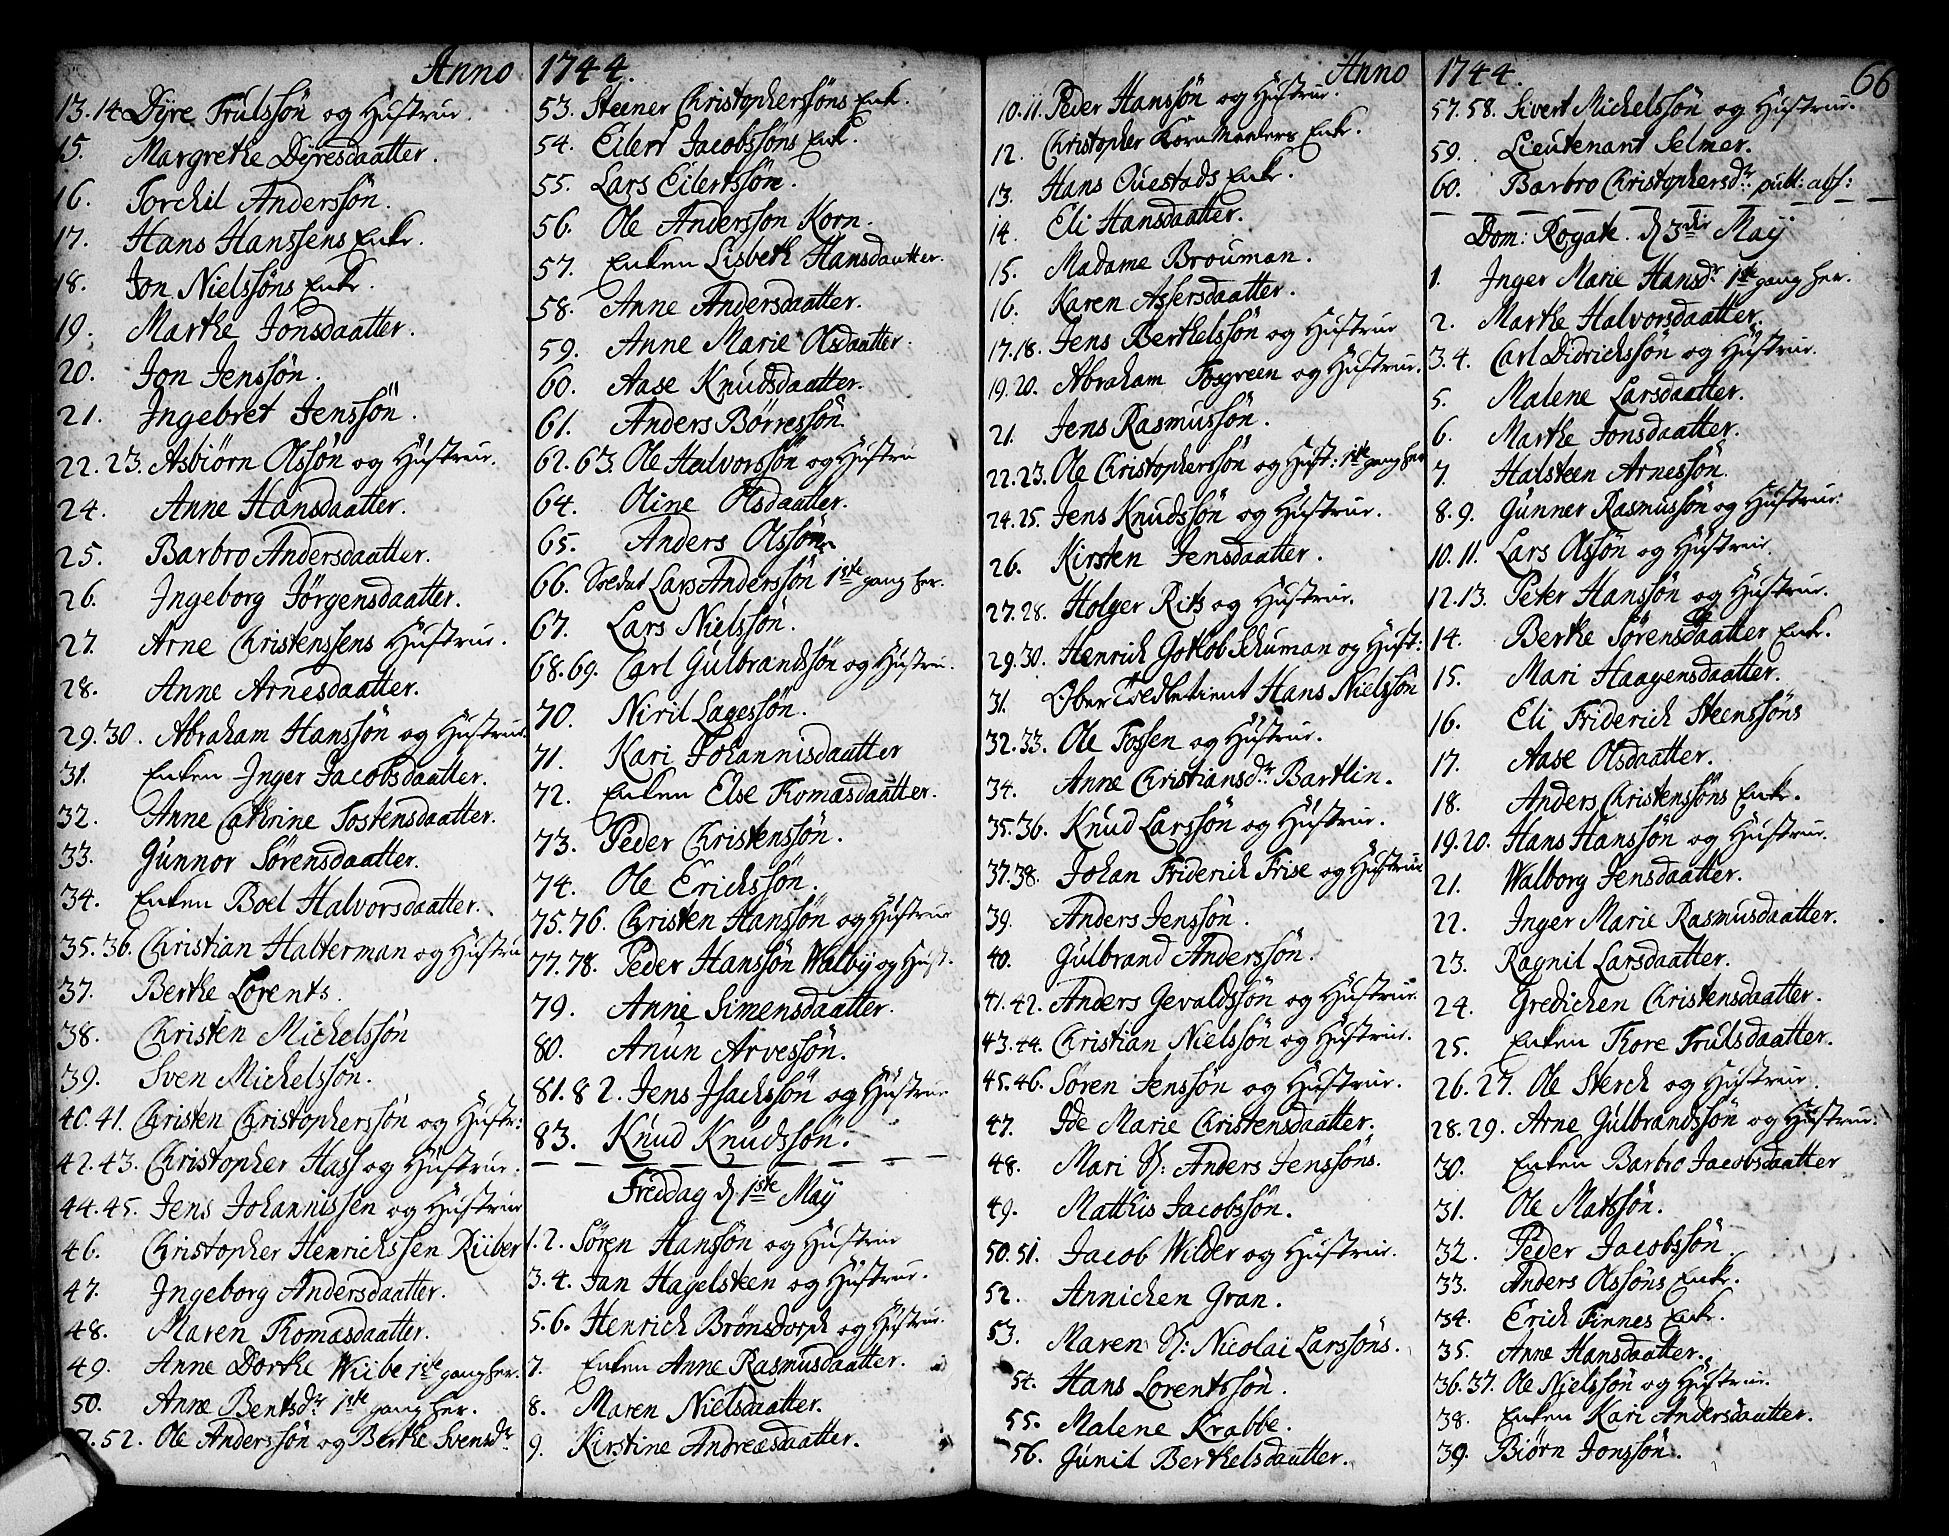 Anno 1744.
13.14. Dÿre Trulssön og Hustrue.
15. Margrethe Dÿresdaatter.
16. Torchil Anderssön.
17. Hans Hanssens Enke.
18. Jon Nielssöns Enke.
19. Marthe Jonsdaatter.
20. Jon Jenssön.
21. Ingebret Jenssön.
22.23. Asbiörn Olssön og Hustrue.
24. Anne Hansdaatter.
25. Barbro Andersdaatter.
26. Ingeborg Jörgensdaatter.
27. Arne Christenssens Hustrue.
28. Anne Arnesdaatter.
29.30. Abraham Hanssön og Hustrue
31. Enken Inger Jacobsdaatter.
32. Anne Cathrine Tostensdaatter.
33. Gunnor Sörensdaatter.
34. Enken Boel Halvorsdaatter.
35.36. Christian Halterman og Hustru
37. Berthe Lorents.
38. Christen Michelssön
39. Sven Michelssön.
40.41. Christen Christopherssön og Hustr:
42.43. Christopher Hass og Hustrue.
44.45. Jens Johannissen og Hustrue
46. Christopher Henrichssen Riiber
47. Ingeborg Andersdaatter.
48. Maren Thomasdaatter.
49. Anne Dorthe Wiibe 1ste gang her.
50. Anne Bentsdr 1ste gang her.
52. Ole Anderssön og Berthe Svensdr
53. Steener Christopherssöns Enk.
54. Eilert Jacobssöns Enk.
55. Lars Eilertssön.
56. Ole Andersson Korn.
57. Enken Lisbeth Hansdaatter.
58. Anne Andersdaatter.
59. Anne Marie Olsdaatter.
60. Aase Knudsdaatter.
61. Anders Börressön
62.63. Ole Halvorssön og Hustru
64. Oline Olsdaatter.
65. Anders Olssön
66. Soldat Lars Anderssön 1ste gang her.
67. Lars Nielssön.
68.69. Carl Gulbrandssön og Hustru.
70. Niril Lagessön.
71. Kari Johannisdaatter
72. Enken Else Thomasdaatter.
73. Peder Christenssön.
74. Ole Erichssön.
75.76. Christen Hanssön og Hustrue
77.78. Peder Hanssön Walbÿ og Hust.
79. Anne Simensdaatter.
80. Anun Arvessön.
81.82. Jens Isachssön og Hustrue
83. Knud Knudssön.
Freddag d. 1ste Maÿ
1.2. Sören Hanssön og Hustrue
3.4. Jan Hagelsteen og Hustrue.
5.6. Henrich Brönsdorph og Hustrue.
7. Enken Anne Rasmusdaatter.
8. Maren Nielsdaatter.
9. Kirstine Andreasdaatter.
Anno 1744. 66
10.11. Peder Hanssön og Hustrue.
12. Christopher Korn Enke.
13. Hans Ouestads Enke.
14. Eli Hansdaatter.
15. Madame Brouman.
16. Karen Assersdaatter.
17.18. Jens Berthelssön og Hustrue
19.20. Abraham Fosgreen og Hustrue.
21. Jens Rasmussön.
22.23. Ole Christopherssön og Hust: 1ste gang her
24.25. Jens Knudssön og Hustrue.
26. Kirsten Jensdaatter.
27.28. Holger Rits og Hustrue.
29.30. Henrich Gotlob Schuman og Hust:
31. Hans Nielssön
32.33. Ole Fossen og Hustrue.
34. Anne Christiansdr Bartlin.
35.36. Knud Larssön og Hustrue.
37.38. Johan Friderich Frise og Hustrue
39. Anders Jenssön.
40. Gulbrand Anderssön.
41.42. Anders Gevaldssön og Hustrue.
43.44. Christian Nielssön og Hustrue.
45.46. Sören Jenssön og Hustrue.
47. Ide Marie Christensdaatter.
48. Mari H: Anders Jenssöns.
49. Matthis Jacobssön.
50.51. Jacob Wilder og Hustrue.
52. Annichen Gran.
53. Maren H: Nicolai Larssöns.
54. Hans Lorentssön.
55. Malene Krabbe.
56. Gunil Berthelsdaatter.
57.58. Sivert Michelssön og Hustrue.
59. Lieutenant Selmer.
60. Barbro Christophersdr: publ: abs:
Dom: Rogate. d. 3die Maÿ
1. Inger Marie Hansdr 1ste gang her.
2. Marthe Halvorsdaatter.
3.4. Carl Didrichssön og Hustrue.
5. Malene Larsdaatter.
6. Marthe Jonsdaatter.
7. Halsteen Arnessön.
8.9. Gunner Rasmussön og Hustrue:
10.11. Lars Olssön og Hustrue.
12.13. Peter Hanssön og Hustrue.
14. Berthe Sörensdaatter Enke.
15. Mari Haagensdaatter.
16. Eli Friderich Steenssöns
17. Aase Olsdaatter.
18. Anders Christenssöns Enke.
19.20. Hans Hanssön og Hustrue.
21. Walborg Jensdaatter.
22. Inger Marie Rasmusdaatter.
23. Ragnil Larsdaatter.
24. Gredichen Christensdaatter.
25. Enken Thore Trulsdaatter.
26.27. Ole Sterch og Hustrue.
28.29. Arne Gulbrandssön og Hustrue.
30. Enken Barbro Jacobsdaatter
31. Ole Matssön.
32. Peder Jacobssön.
33. Anders Olssöns Enke.
34. Erich Finnes Enke.
35. Anne Hansdaatter.
36.37. Ole Nielssön og Hustrue.
38. Enken Kari Andersdaatter.
39. Biörn Jonssön.